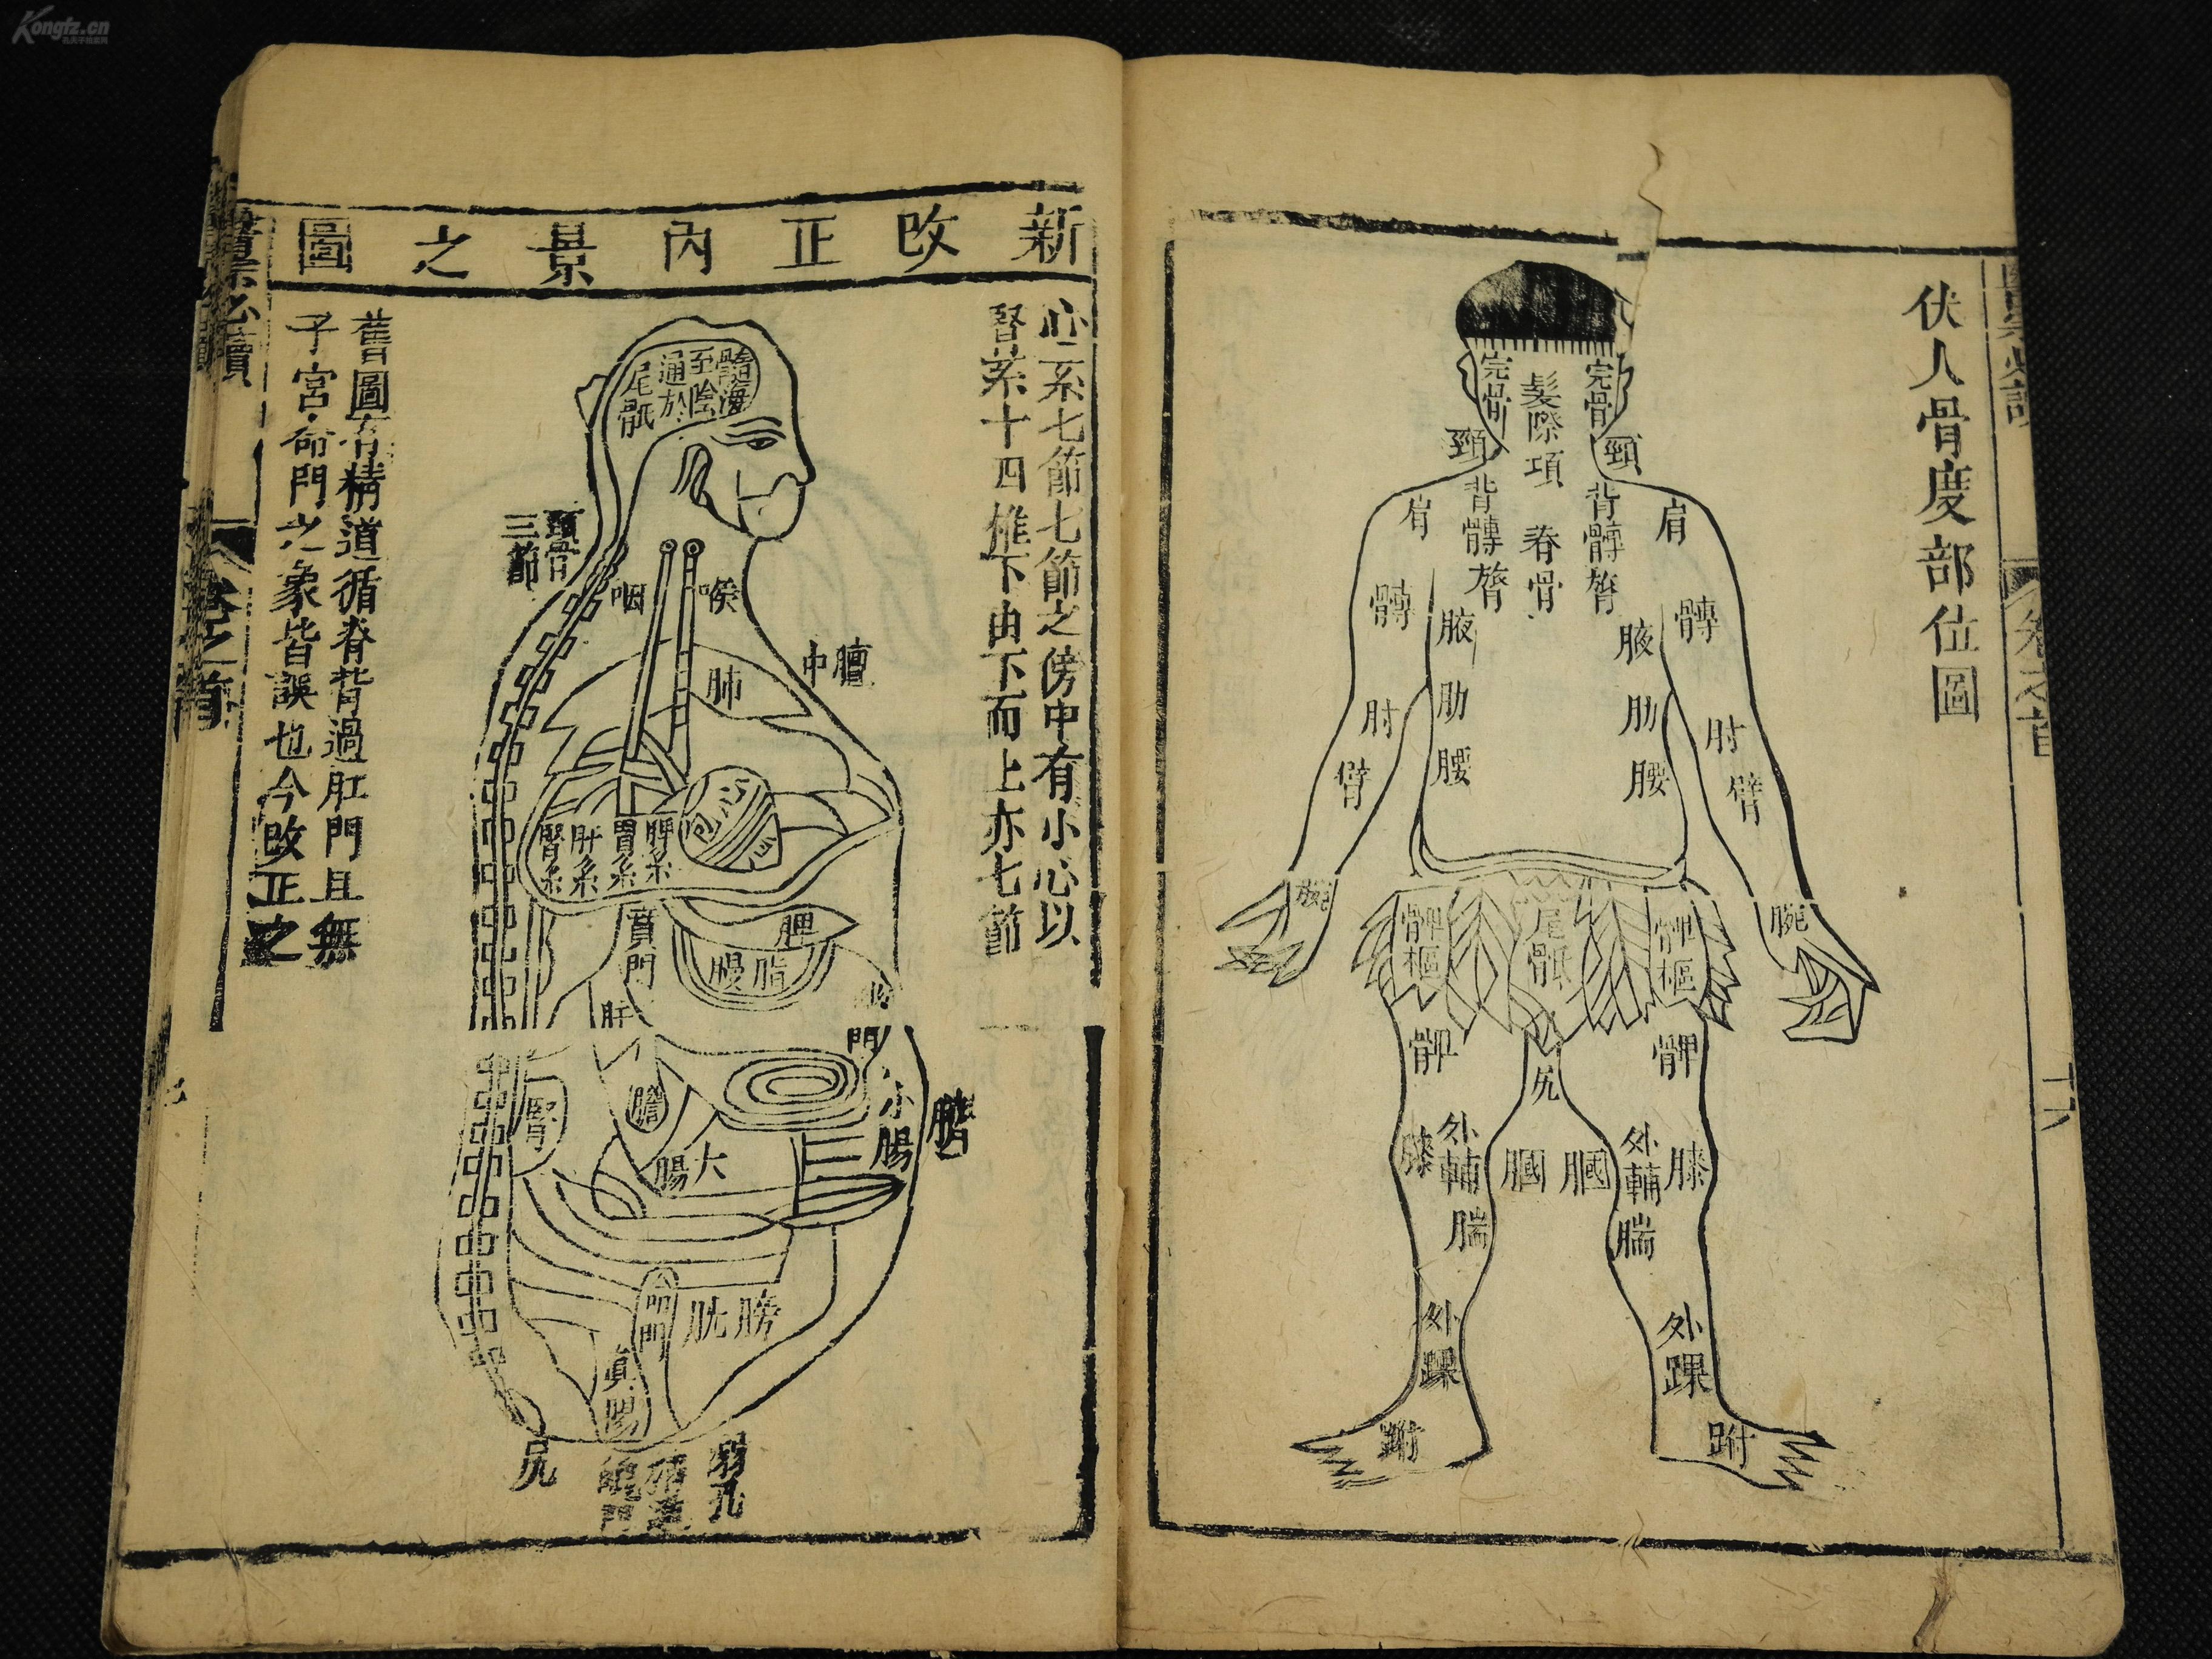 Kongfz.cn
伏人骨度部位圖
完骨
髮際
項
脊骨
完骨
頸
頸
肩
肩
背髆膂
背髆膂
髆
髆
腋
腋
肋
肋
腰
腰
肘
肘
臂
臂
腕
腕
髀樞
尾骶
髀樞
髀
髀
尻
膝
外輔
膕
膕
外輔
膝
腨
腨
外踝
外踝
跗
跗
十六
新改正內景之圖
心系七節七節之傍中有小心以
腎系十四椎下由下而上亦七節
髓海
至陰
通於
尾骶
頸骨
三節
咽
喉
膻中
肺
心
脾系
胃系
肝系
腎系
賁門
脾
脂膜
肝
門
腎
膽
小腸
臍
大腸
膀胱
命門
直腸
尻
溺孔
精道
魄門
舊圖有精道循脊背過肛門且無
子宮命門之象皆誤也今改正之
醫宗必讀
卷之首